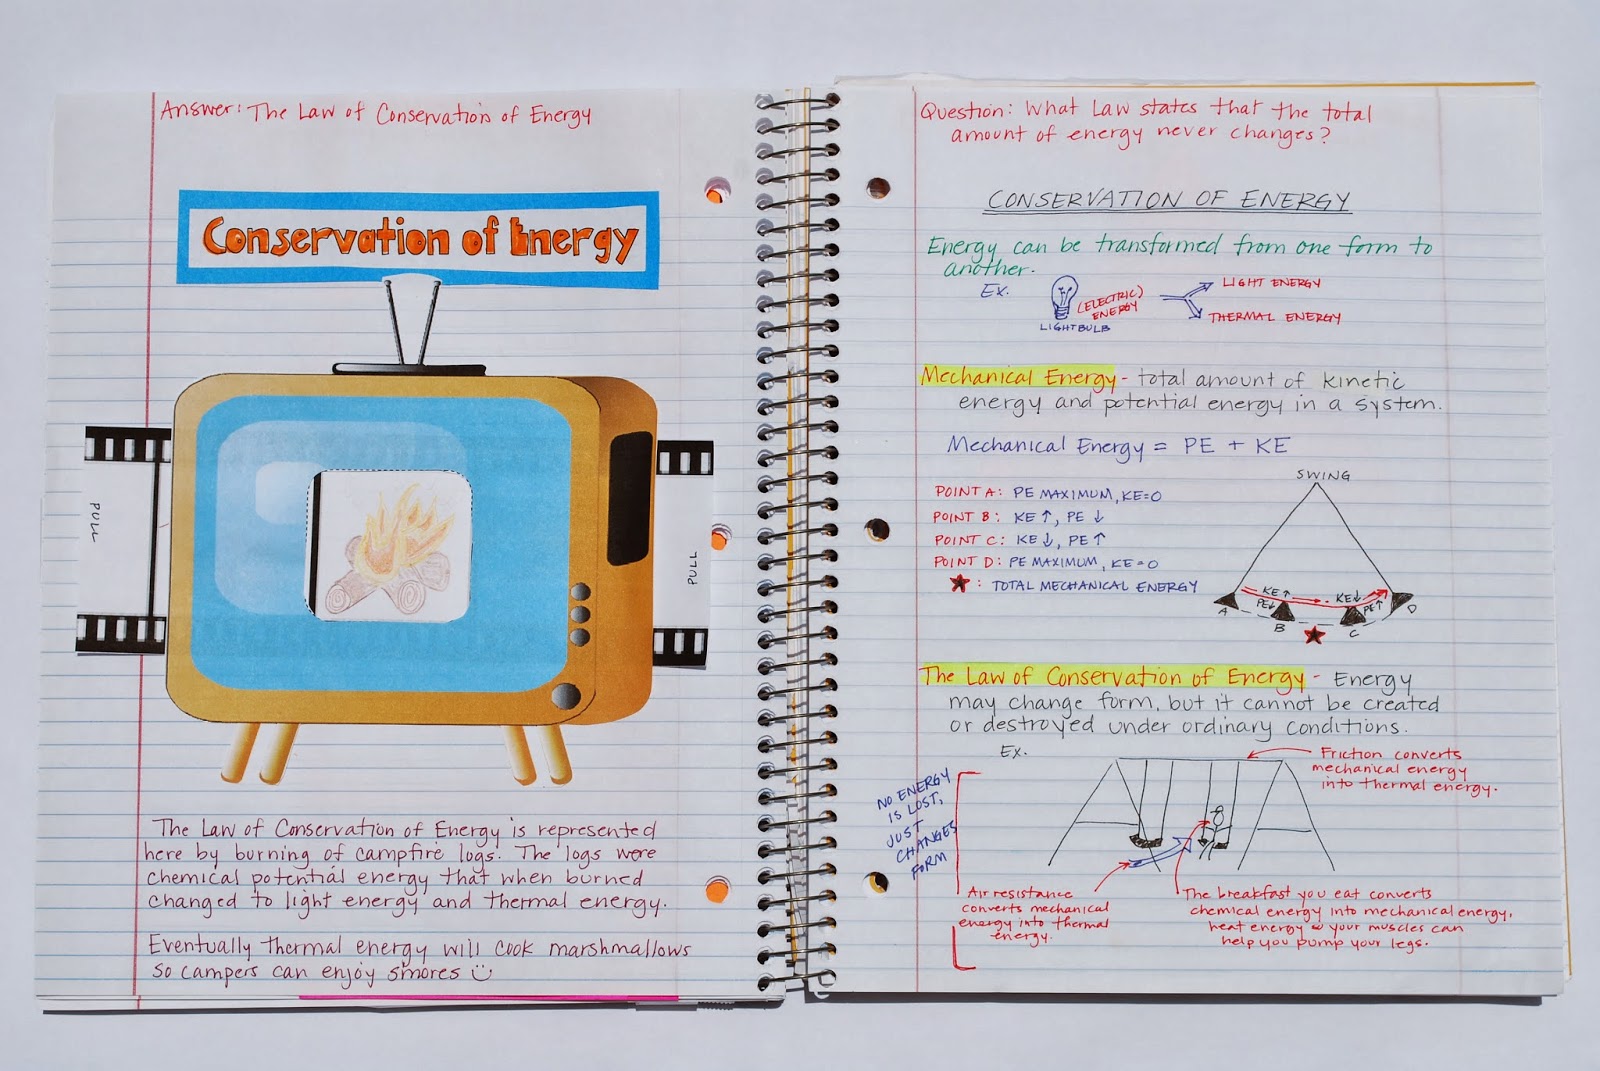 Answer: The Law of Conservation of Energy
Conservation of Energy
PULL
PULL
The Law of Conservation of Energy is represented
here by burning of campfire logs. The logs were
chemical potential energy that when burned
changed to light energy and thermal energy.
Eventually thermal energy will cook marshmallows
so campers can enjoy s'mores
Question: What Law states that the total
amount of energy never changes?
CONSERVATION OF ENERGY
Energy can be transformed from one form to
another.
Ex.
LIGHTBULB
(ELECTRIC)
ENERGY
LIGHT ENERGY
THERMAL ENERGY
Mechanical Energy - total amount of kinetic
energy and potential energy in a system.
Mechanical Energy = PE + KE
POINT A: PE MAXIMUM, KE=0
POINT B: KE ↑, PE ↓
POINT C: KE ↓, PE ↑
POINT D: PE MAXIMUM, KE=0
★: TOTAL MECHANICAL ENERGY
SWING
KE↑
PE↓
KE↓
PE↑
A
B
C
D
The Law of Conservation of Energy - Energy
may change form, but it cannot be created
or destroyed under ordinary conditions.
Ex.
NO ENERGY
IS LOST,
JUST
CHANGES
FORM
Friction converts
mechanical energy
into thermal energy.
Air resistance
converts mechanical
energy into thermal
energy.
The breakfast you eat converts
chemical energy into mechanical energy,
heat energy & your muscles can
help you pump your legs.